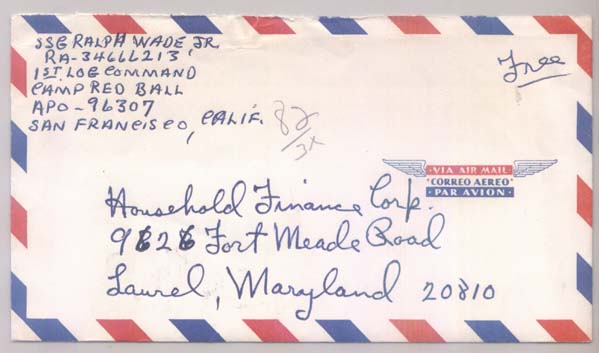 SSG RALPH WADE JR.
RA-34666213
1ST. LOG COMMAND
CAMP RED BALL
APO - 96307
SAN FRANCISCO, CALIF.
Free
82/3x
VIA AIR MAIL
CORREO AEREO
PAR AVION
Household Finance Corp.
9626 Fort Meade Road
Laurel, Maryland 20810